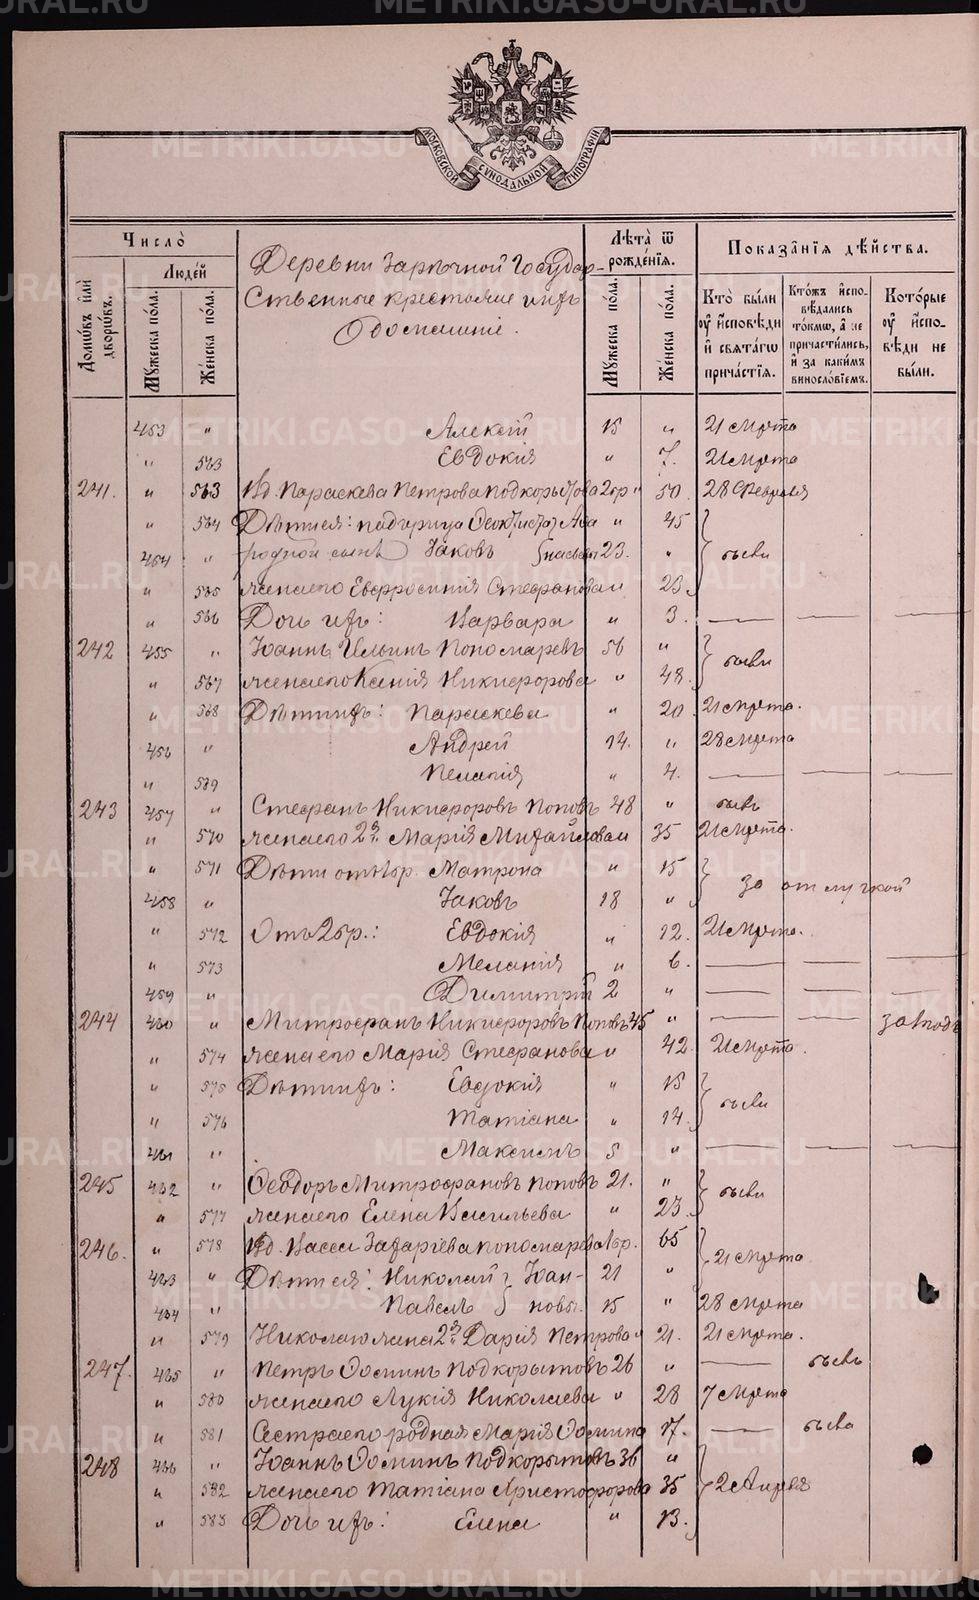 METRIKI.GASO-URAL.RU
МОСКОВСКОЙ СѴНОДАЛЬНОЙ ТИПОГРАФІИ
Число̀
Людє́й
Домѡ́въ и҆лѝ дворѡ́въ.
Мꙋ́жеска по́ла.
Же́нска по́ла.
Деревни Зарѣчной Государ-
ственные крестьяне и ихъ
домашніе.
Лѣта̀ ѿ рожде́нїѧ.
Мꙋ́жеска по́ла.
Же́нска по́ла.
Показа̑нїѧ дѣ́йства.
Кто̀ бы́ли ᲂу҆ и҆́сповѣди и҆ свѧта́гѡ прича́стїѧ.
Кто́жъ и҆спо-вѣ́дались то́кмѡ, а҆ не причасти́лись, и҆ за каки́мъ виносло́вїемъ.
Кото́рые ᲂу҆ и҆́спо-вѣди не бы́ли.
453 " Алексій 15 " 21 Марта
" 563 Евдокія " 7. 21 Марта
241. " 563 Вд. Параскева Петрова Подкорытова 2 бр " 50. 28 Февраля
" 564 Дѣти ея: падчерица Ѳеоктиста " 45
454 " родной сынъ Іаковъ 23. " были
" 565 жена его Евфросинія Стефанова " 23.
" 566 Дочь ихъ: Варвара " 3. — — —
242 455 " Іоаннъ Ильинъ Пономаревъ 56 " были
" 567 жена его Ксенія Никифорова " 48.
" 568 Дѣти ихъ: Параскева " 20 21 Марта.
456 " Андрей 14. " 28 Марта
" 569 Пелагія " 4. — — —
243 457 " Стефанъ Никифоровъ Поповъ 48 " былъ
" 570 жена его 2 бр. Марія Михайлова " 35 21 Марта.
" 571 Дѣти отъ 1 бр. Матрона " 15
458 " Іаковъ 18 " за отлучкой
" 572 Отъ 2 бр.: Евдокія " 12. 21 Марта.
" 573 Меланія " 6. — — —
459 " Димитрій 2 " — — —
244 460 " Митрофанъ Никифоровъ Поповъ 45 " — —
" 574 жена его Марія Стефанова " 42. 21 Марта.
" 575 Дѣти ихъ: Евдокія " 15
" 576 Татіана " 14. были
461 " Максимъ 5 " — — —
245 462 " Ѳеодоръ Митрофановъ Поповъ 21. " были
" 577 жена его Елена Васильева " 23.
246. " 578 Вд. Васса Захаріева Пономарева 1 бр. 65
463 " Дѣти ея: Николай } Іоан- 21 " 21 Марта
464 " Павелъ } новы. 15 " 28 Марта
" 579 Николаю жена 2 бр. Дарія Петрова " 21. 21 Марта.
247. 465 " Петръ Ѳоминъ Подкорытовъ 26 " — былъ
" 580 жена его Лукія Николаева " 28 7 Марта
" 581 Сестра его родная Марія Ѳомина 17. — была
248 466 " Іоаннъ Ѳоминъ Подкорытовъ 36 "
" 582 жена его Татіана Христофорова 35 2 Апреля
" 583 Дочь ихъ: Елена " 13.